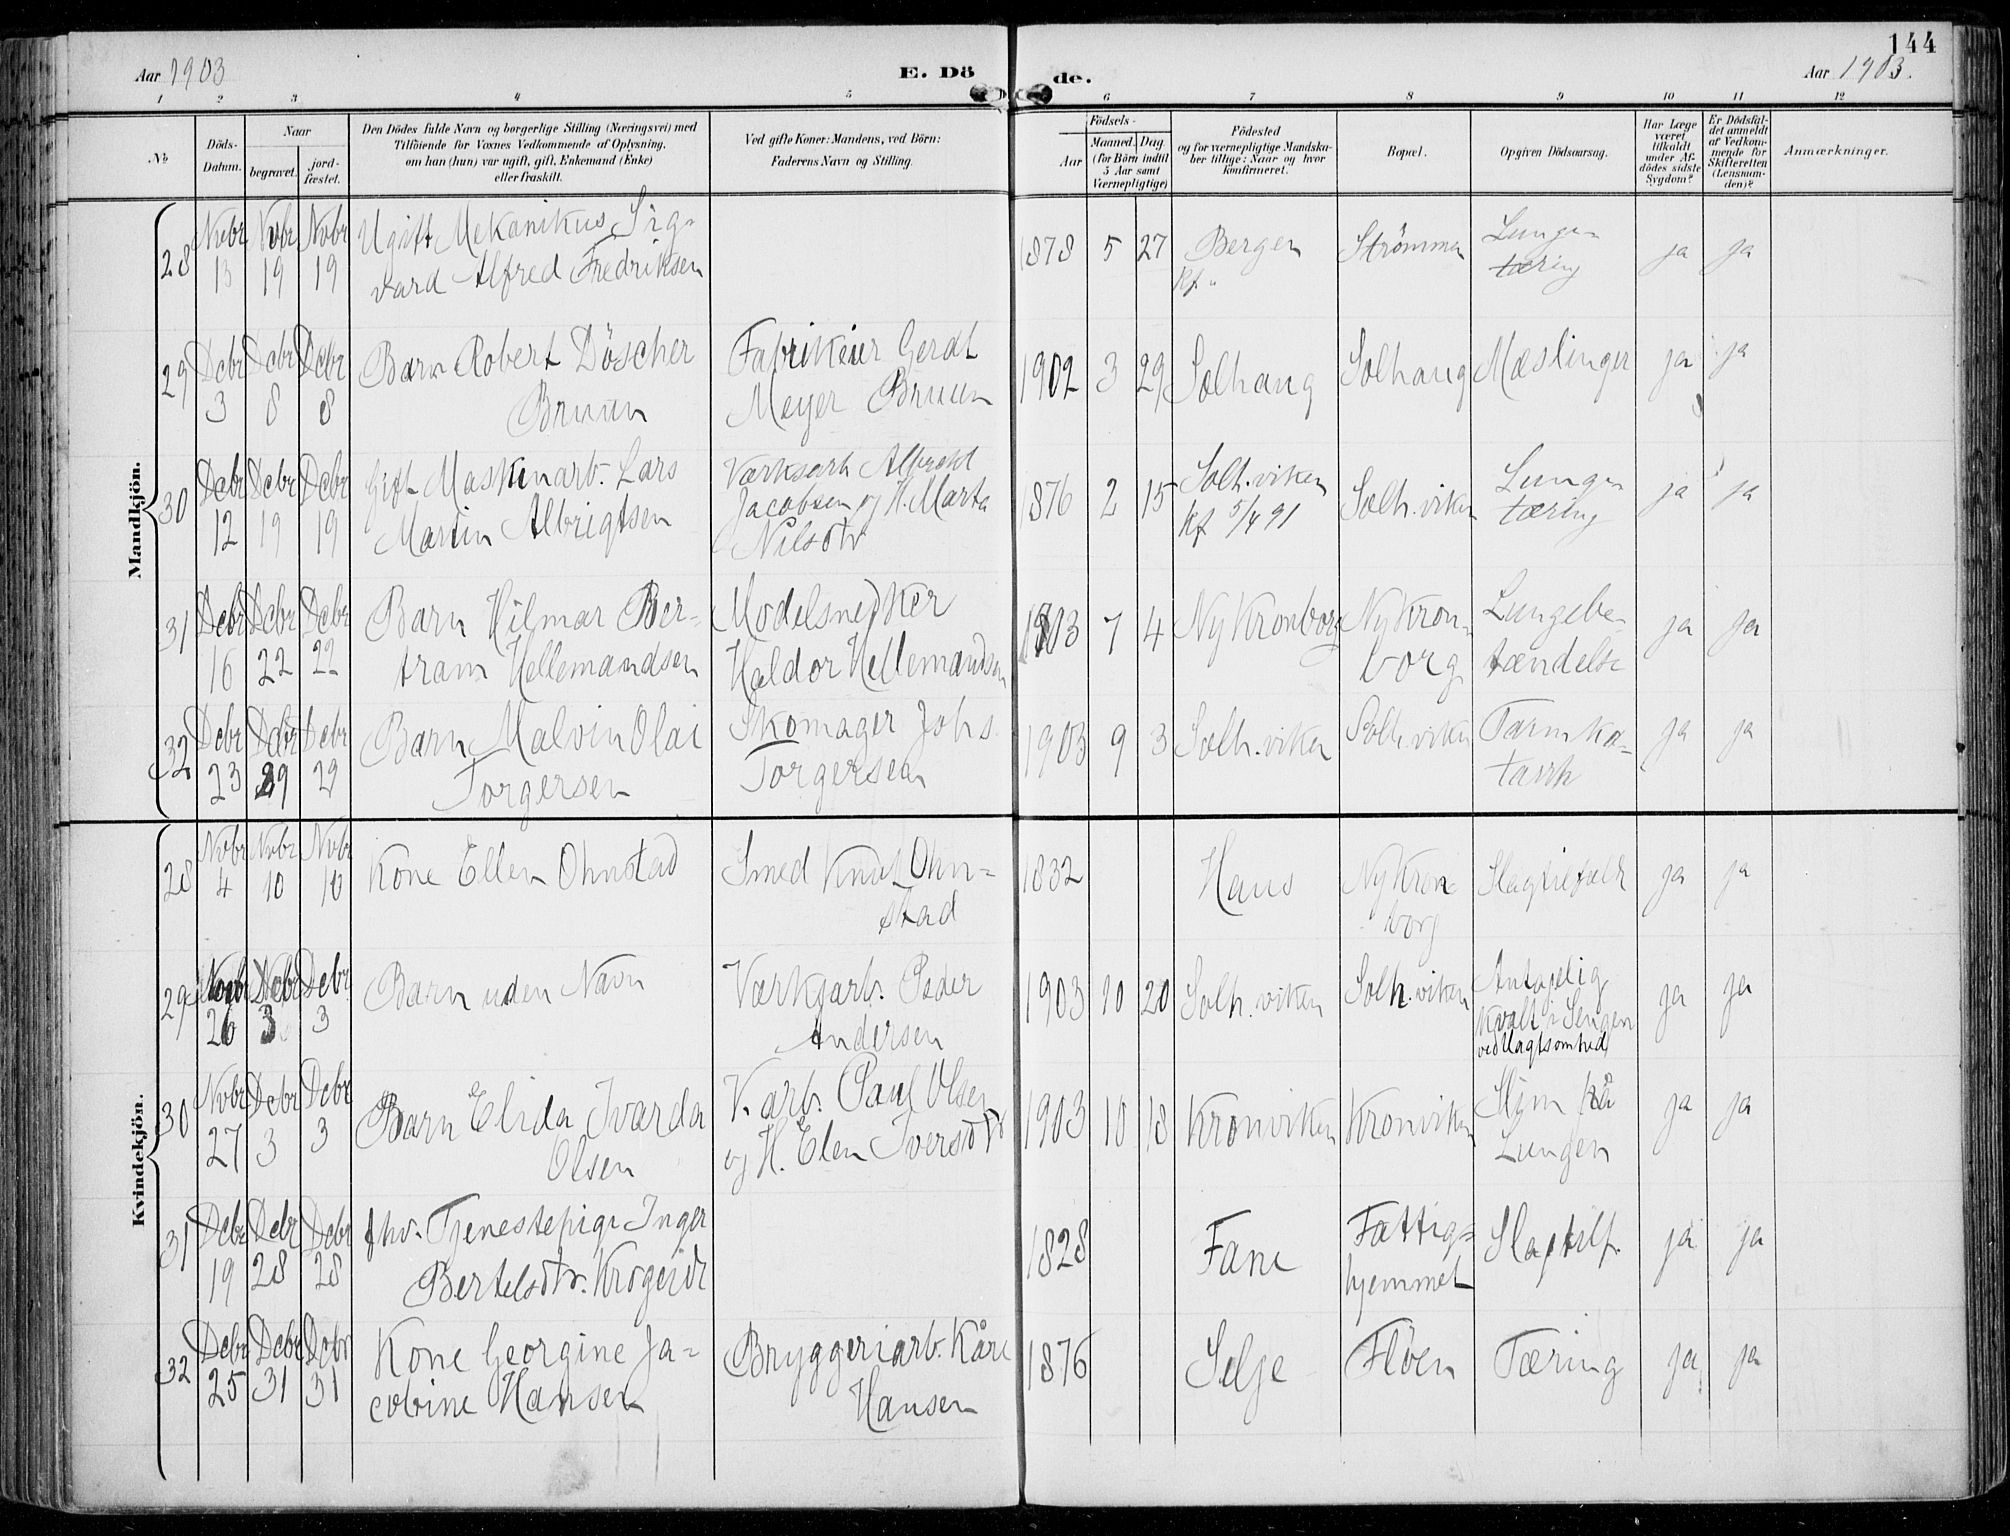 144
Aar 1903
E. Döde.
Aar 1903.
1 2 3 4 5 6 7 8 9 10 11 12
No
Döds-Datum.
Naar
begravet.
jord-fæstet.
Den Dödes fulde Navn og borgerlige Stilling (Næringsvei) med
Tilföiende for Voxnes Vedkommende af Oplysning,
om han (hun) var ugift, gift, Enkemand (Enke)
eller fraskilt.
Ved gifte Koner: Mandens, ved Börn:
Faderens Navn og Stilling.
Födsels-
Aar
Maaned. Dag.
(for Börn indtil
5 Aar samt
Værnepligtige)
Födested
og for værnepligtige Mandska-
ber tillige: Naar og hvor
konfirmeret.
Bopæl.
Opgiven Dödsaarsag.
Har Læge
været
tilkaldt
under Af-
dödes sidste
Sygdom?
Er Dödsfal-
det anmeldt
af Vedkom-
mende for
Skifteretten
(Lensman-
den)?
Anmærkninger.
Mandkjön.
28 Nvbr 13 Nvbr 19 Nvbr 19 Ugift Mekanikus Sig-
vard Alfred Fredriksen
1878 5 27 Bergen Kf. " Strömmen Lunge-
tæring ja ja
29 Dcbr 3 Dcbr 8 Dcbr 8 Barn Robert Döscher
Bruun
Fabrikeier Gerdt
Meyer Bruun
1902 3 29 Solhaug Solhaug Mæslinger ja ja
30 Dcbr 12 Dcbr 19 Dcbr 19 Gift Maskinarb. Lars
Martin Albrigtsen
Værksarb Albrekt
Jacobsen og H. Marta
Nilsdtr
1876 2 15 Solh.viken
Kf 5/4 91 Solh.viken Lunge-
tæring ja ja
31 Dcbr 16 Dcbr 22 Dcbr 22 Barn Hilmar Ber-
tram Hellemandsen
Modelsnedker
Haldor Hellemandsen
1903 7 4 Ny Kronborg Ny Kron-
borg Lungebe-
tændelse ja ja
32 Dcbr 23 Dcbr 29 Dcbr 29 Barn Malvin Olai
Torgersen
Skomager Johs.
Torgersen
1903 9 3 Solh.viken Solh.viken Tarmka-
tarrh ja ja
Kvindekjön.
28 Nvbr 4 Nvbr 10 Nvbr 10 Kone Ellen Ohnstad
Smed Knut Ohn-
stad
1832 Haus Ny Kron-
borg Slagtilfæld ja ja
29 Nvbr 26 Dcbr 3 Dcbr 3 Barn uden Navn
Værksarb. Peder
Andersen
1903 10 20 Solh.viken Solh.viken Antagelig
kvalt i Sengen
ved Uagtsomhed ja ja
30 Nvbr 27 Dcbr 3 Dcbr 3 Barn Elida Ivarda
Olsen
V. arb. Paul Olsen
og H. Elen Iversdtr
1903 10 18 Kronviken Kronviken Slim på
Lungen ja ja
31 Dcbr 19 Dcbr 28 Dcbr 28 fhv. Tjenestepige Inger
Bertelsdtr.
1828 Fane Fattig-
hjemmet Slagtilf. ja ja
32 Dcbr 25 Dcbr 31 Dcbr 31 Kone Georgine Ja-
cobine Hansen
Bryggeriarb. Kåre
Hansen
1876 Selje Flöen Tæring ja ja